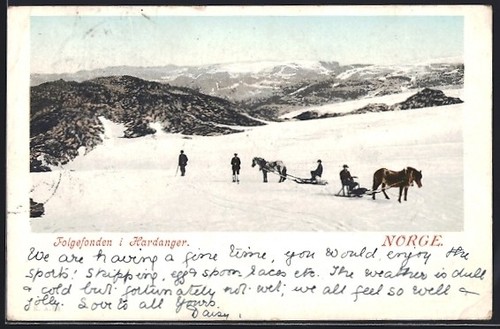 Folgefonden i Hardanger.
NORGE.
We are having a fine time, you would enjoy the
sports: skipping, egg & spoon races etc. The weather is dull
& cold but fortunately not wet; we all feel so well &
jolly. Love to all yours.
Daisy.